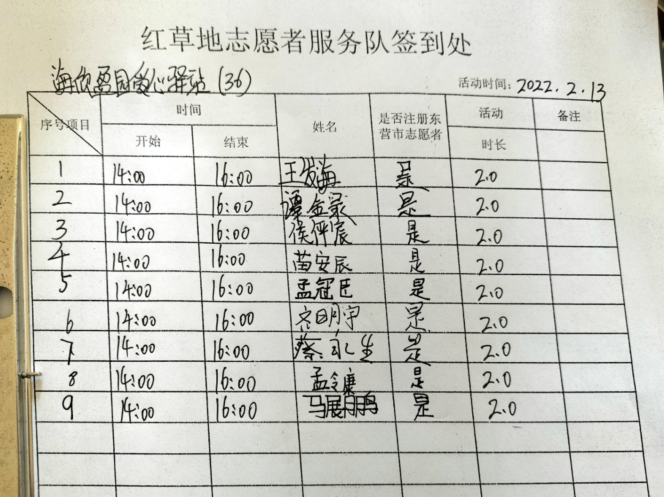 红草地志愿者服务队签到处
海欣盈园爱心驿站(36) 活动时间:2022.2.13
序号项目 时间 姓名 是否注册东营市志愿者 活动 备注
开始 结束 时长
1 14:00 16:00 王发海 是 2.0
2 14:00 16:00 谭金录 是 2.0
3 14:00 16:00 侯怀宸 是 2.0
4 14:00 16:00 苗安辰 是 2.0
5 14:00 16:00 孟冠臣 是 2.0
6 14:00 16:00 明宇 是 2.0
7 14:00 16:00 蔡永生 是 2.0
8 14:00 16:00 孟令康 是 2.0
9 14:00 16:00 马展鹏 是 2.0